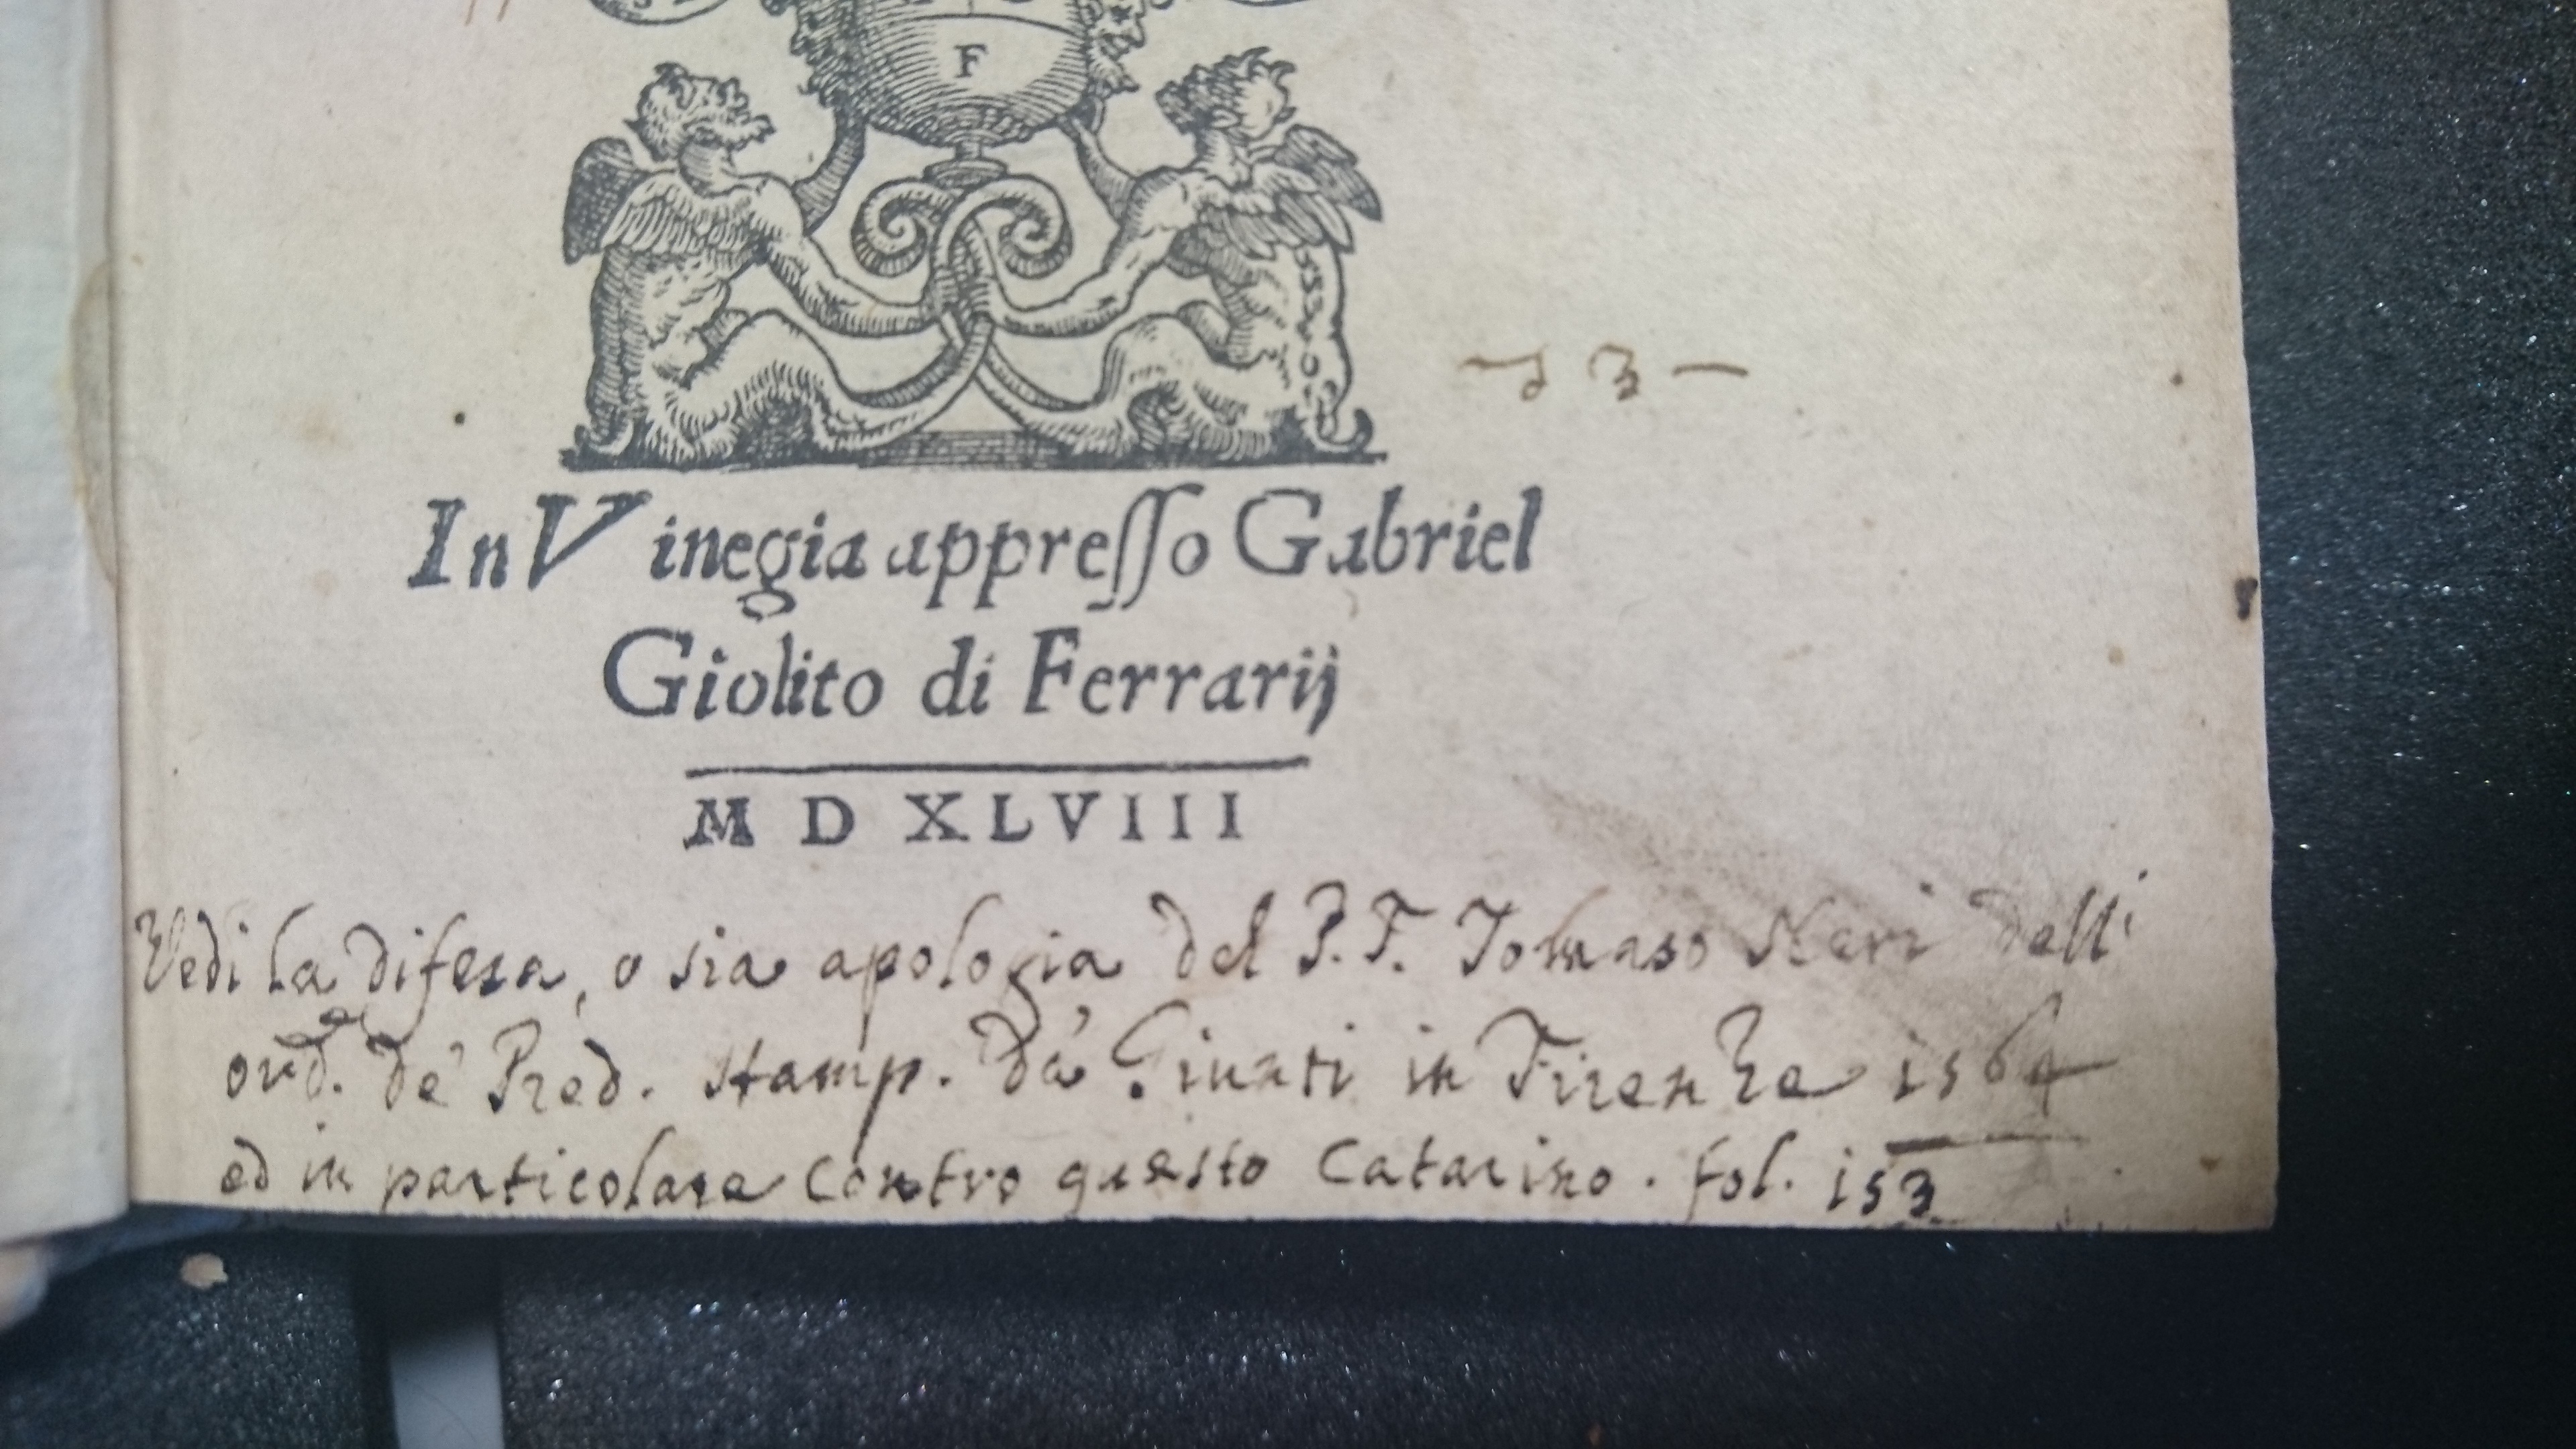 F
3 —
In Vinegia appreſſo Gabriel
Giolito di Ferrarij
M D XLVIII
Vedi la difesa, o sia apologia del P. F. Tomaso Neri delli
ord.e de' Pred. stamp. da' Giunti in Firenze 1564
ed in particolare contro questo Catarino. fol. 153